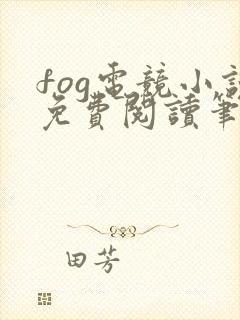 fog電競小說
免費閱讀筆
田芳